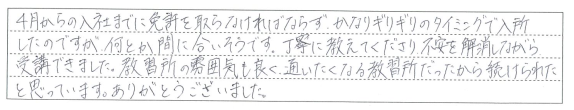 4月からの入社までに免許を取らなければならず、かなりギリギリのタイミングで入所
したのですが、何とか間に合いそうです。丁寧に教えてくださり不安を解消しながら
受講できました。教習所の雰囲気も良く、通いたくなる教習所だったから続けられた
と思っています。ありがとうございました。